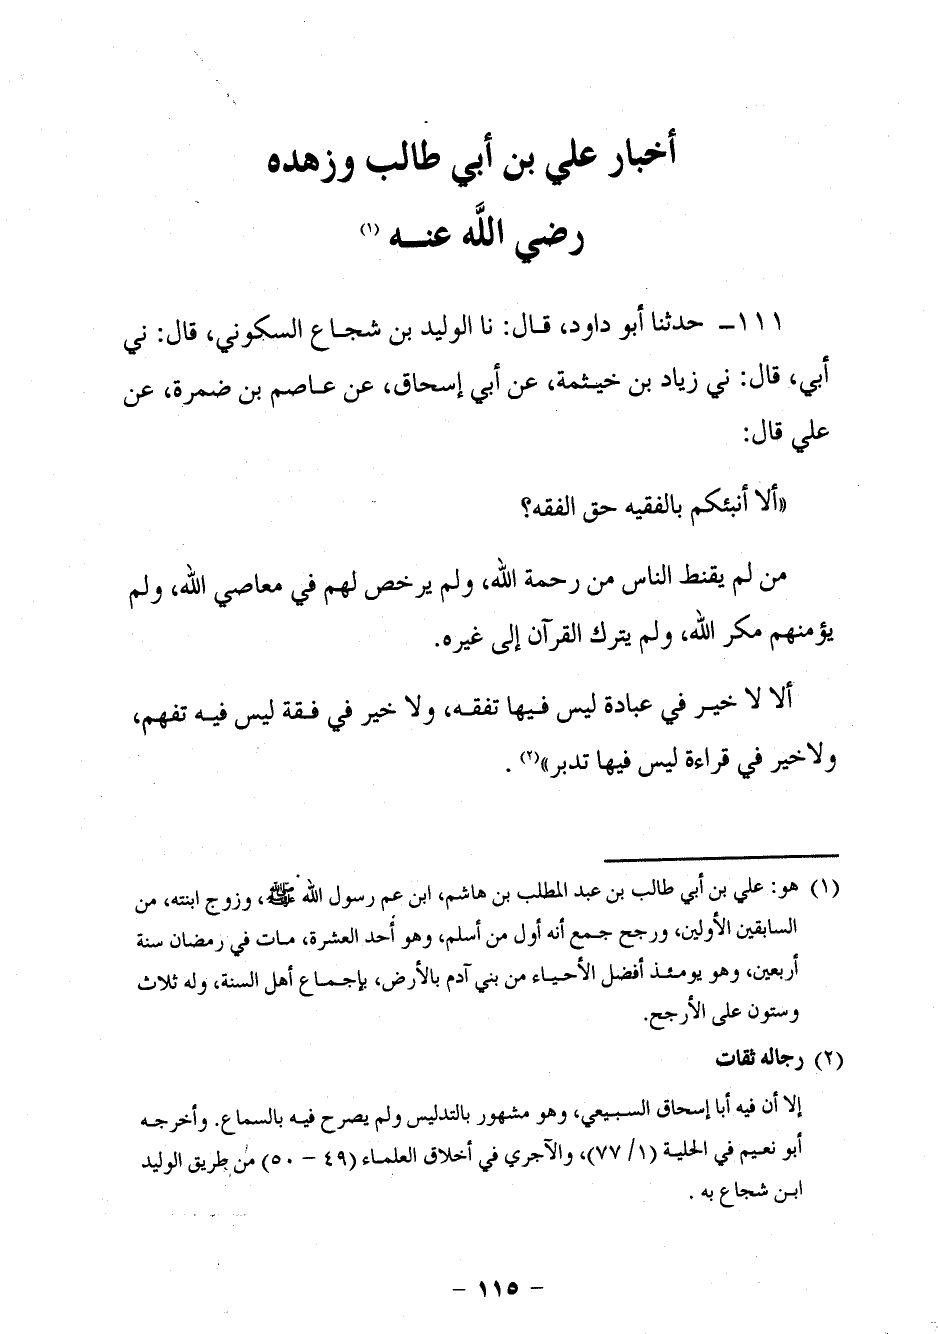 أخبار علي بن أبي طالب وزهده
رضي اللَّه عنـــه (١)
١١١ـ حدثنا أبو داود، قـال: نا الوليد بن شجـاع السكوني، قال: ني
أبي، قال: ني زياد بن خيـثمة، عن أبي إسحاق، عن عـاصم بن ضمرة، عن
علي قال:
«ألا أنبئكم بالفقيه حق الفقه؟
من لم يقنط الناس من رحمة الله، ولم يرخص لهم في معاصي الله، ولم
يؤمنهم مكر الله، ولم يترك القرآن إلى غيره.
ألا لا خيـر في عبادة ليس فـيها تفقـه، ولا خير في فـقة ليس فيـه تفهم،
ولاخير في قراءة ليس فيها تدبر»(٢) .
(١) هو: علي بن أبي طالب بن عبد المطلب بن هاشم، ابن عم رسول الله ﷺ، وزوج ابنته، من
السابقين الأولين، ورجح جـمع أنه أول من أسلم، وهو أحد العشرة، مـات في رمضان سنة
أربعين، وهو يومـئـذ أفضل الأحيـاء من بني آدم بالأرض، بإجمـاع أهل السنة، وله ثلاث
وستون على الأرجح.
(٢) رجاله ثقات
إلا أن فيه أبا إسحاق السـبيعي، وهو مشهور بالتدليس ولم يصرح فيـه بالسماع. وأخرجـه
أبو نعـيم في الحلية (١/ ٧٧)، والآجري في أخلاق العلمـاء (٤٩ – ٥٠) من طريق الوليد
ابـن شجاع به .
– ١١٥ –